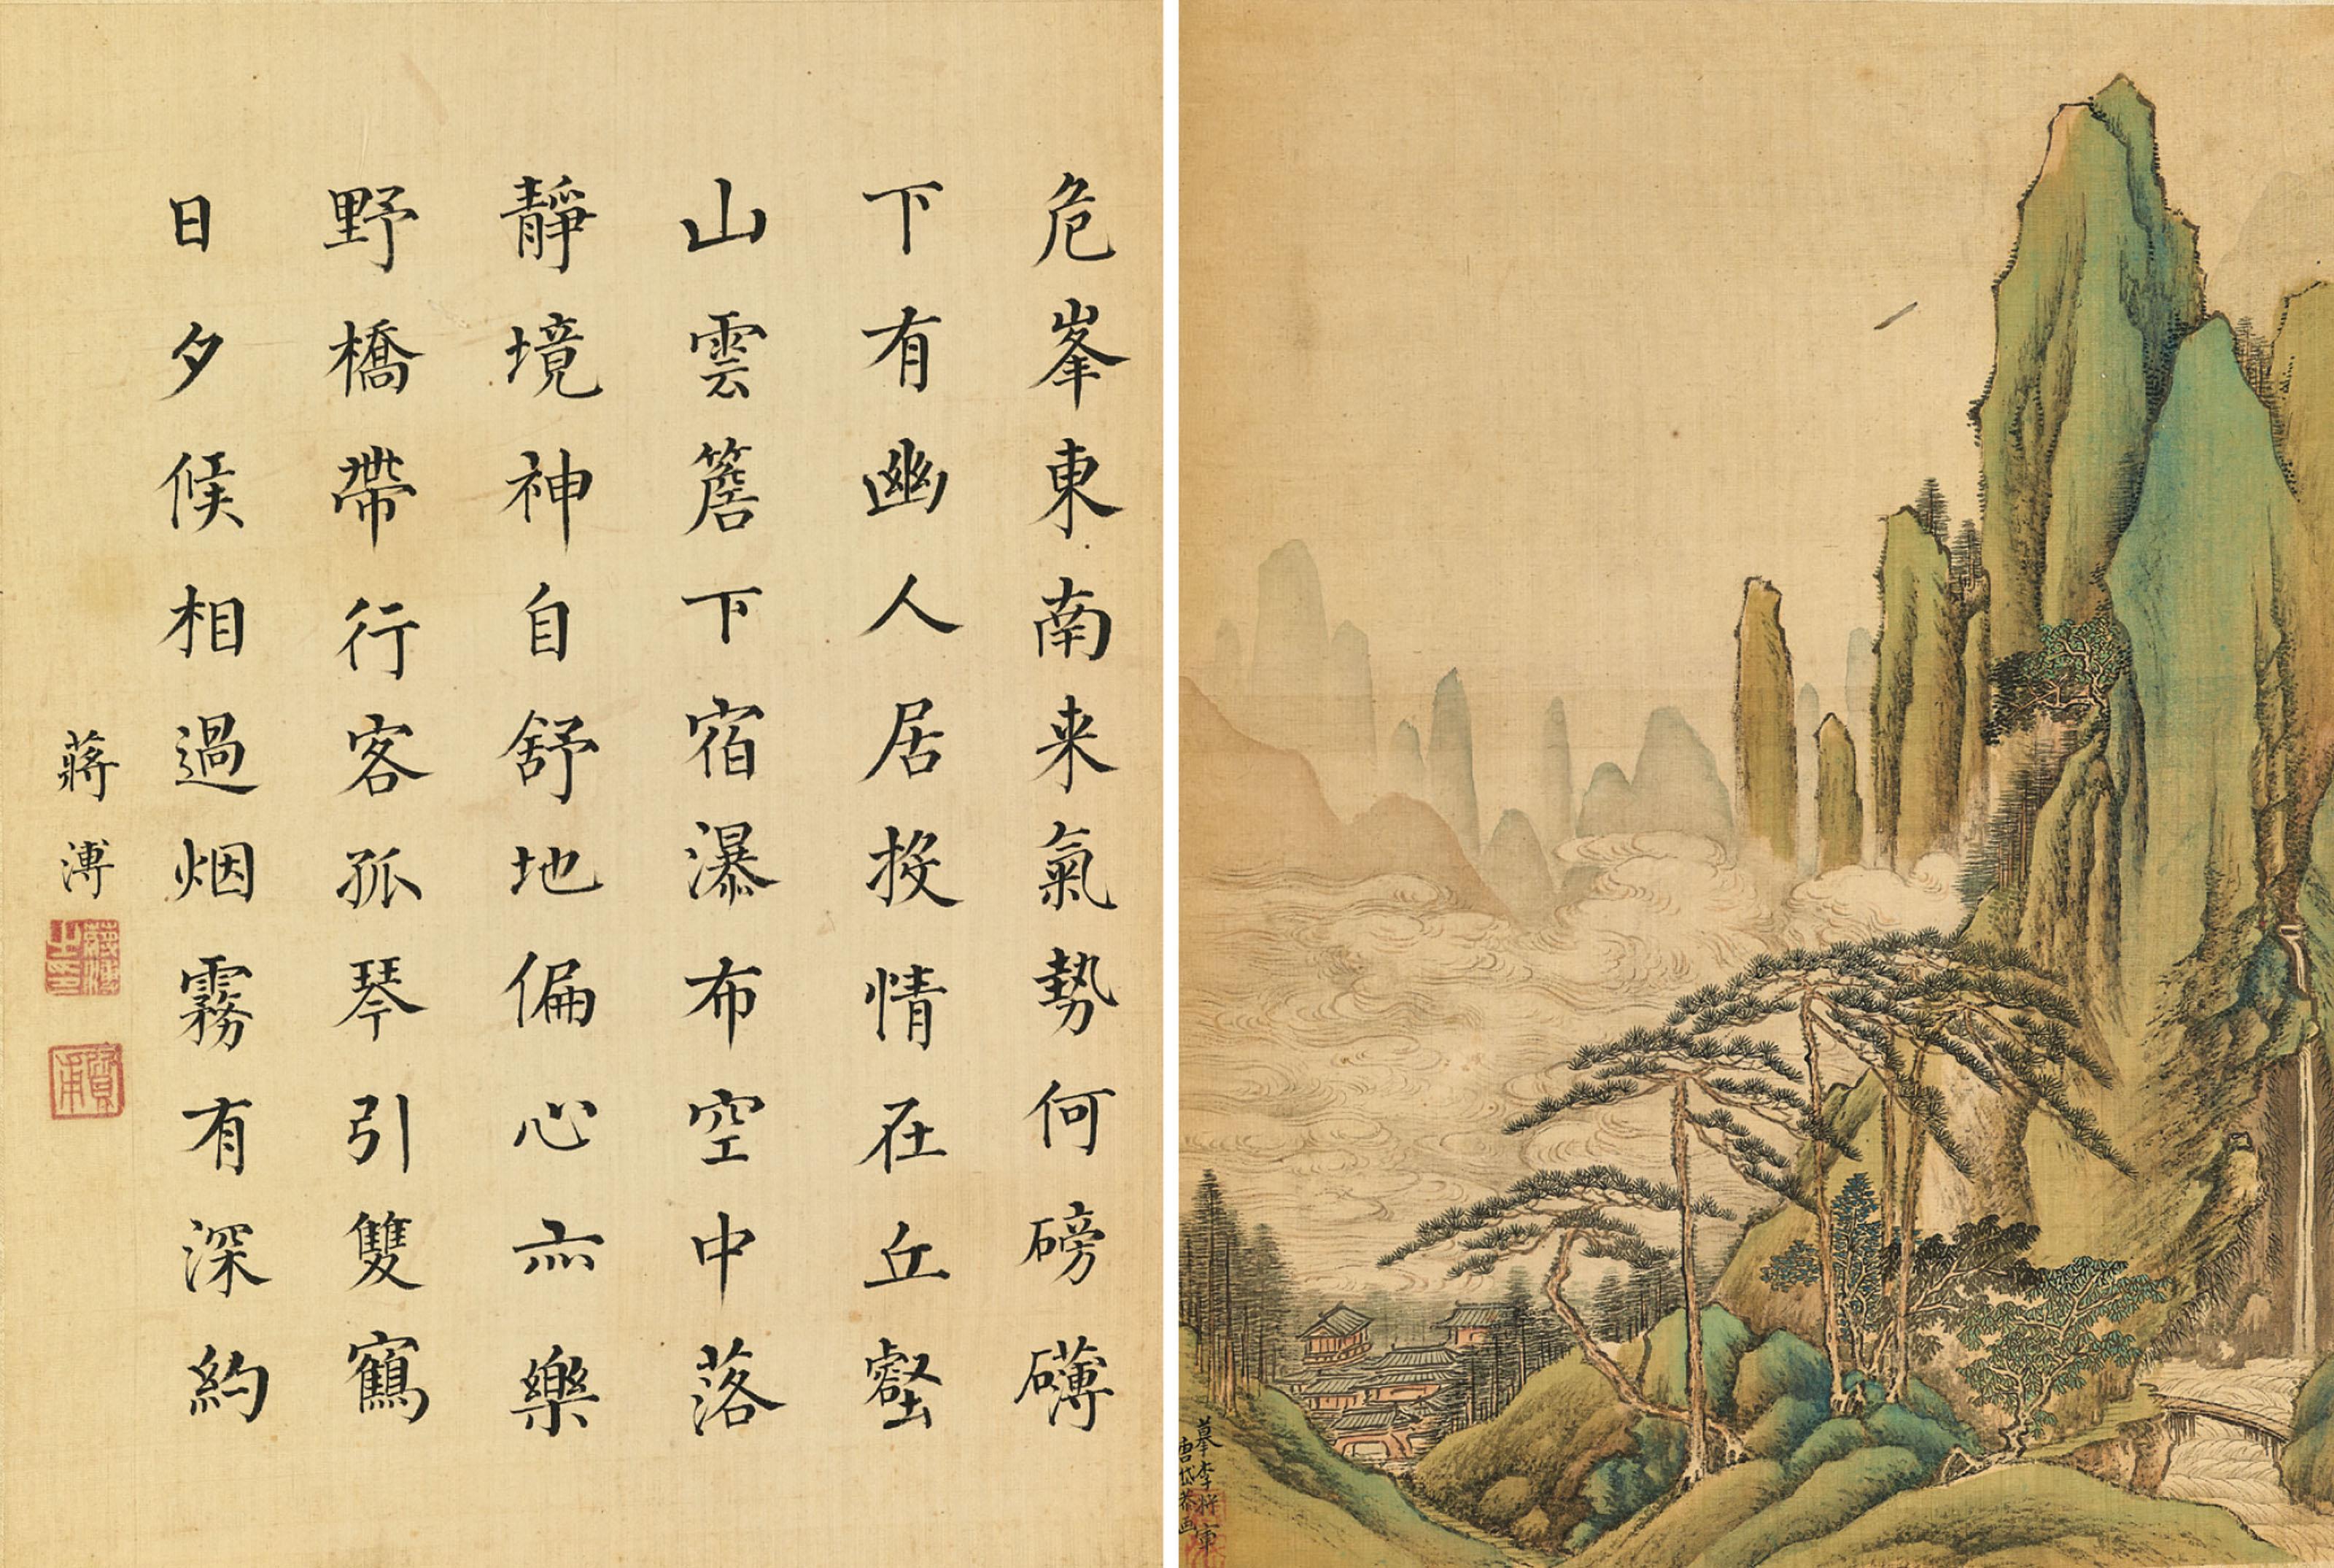 危峯東南来氣勢何磅礴
下有幽人居投情在丘壑
山雲簷下宿瀑布空中落
靜境神自舒地偏心亦樂
野橋帶行客孤琴引雙鶴
日夕候相過烟霧有深約
蔣溥
蔣溥之印
質甫
摹李将軍
唐岱恭画